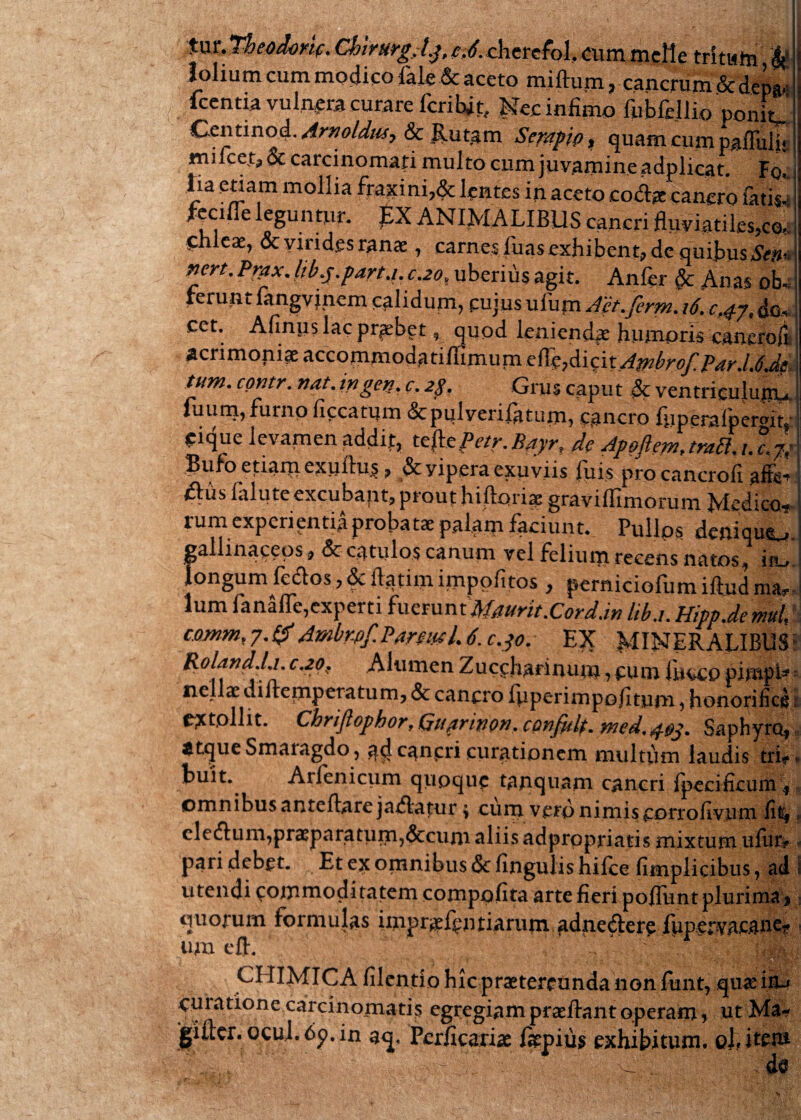 tur. Theodoric. Chirurg. l.3. c.6. cherefol. cum melle tritum, &
solium cum modico sale & aceto mistum, cancrum & depa-
scentia vulnera curare scribit. Nec infimo subsellio ponit
Centinod. Arnoldus, & Rutam Serapio, quam cum passulis
miscet, & carcinomati multo cum juvamine adplicat. Fo-
lia etiam mollia fraxini, & lentes in aceto coctæ cancro satis-
fecisse leguntur. EX ANIMALIBUS cancri fluviatiles, co-
chleæ, & virides ranæ, carnes suas exhibent, de quibus Sen-
nert. Prax. lib.5. part.1. c.20. uberius agit. Anser & Anas ob-
ferunt sangvinem calidum, cujus usum Aët. serm. 16. c.47. do-
cet. Asinus lac præbet, quod leniendæ humoris cancrosi
acrimoniæ accommodatissimum esse, dicit Ambros. Par. l.6. de
tum. contr. nat. in gen. c. 28. Grus caput & ventriculum
suum, furno siccatum & pulverisatum, cancro superaspergit,
eique levamen addit, teste Petr. Bayr. de Apostem. tract. 1. c. 7.
Bufo etiam exustus, & vipera exuviis suis pro cancrosi affe-
ctus salute excubant, prout historiæ gravissimorum Medico-
rum experientia probatæ palam faciunt. Pullos denique
gallinaceos, & catulos canum vel felium recens natos, in
longum sectos, & statim impositos, perniciosum istud ma-
lum sanasse, experti fuerunt Maurit. Cord. in lib.1. Hipp. de mul.
comm. 7. & Ambros. Pareus l. 6. c.30. EX MINERALIBUS
Roland. l.1. c.20. Alumen Zuccharinum, cum succo pimpi-
nellæ distemperatum, & cancro superimpositum, honorifice
extollit. Christophor. Guarinon. consult. med. 403. Saphyro,
atque Smaragdo, ad cancri curationem multum laudis tri-
buit. Arsenicum quoque tanquam cancri specificum,
omnibus antestare jactatur; cum vero nimis corrosivum sit,
electum, præparatum, & cum aliis adpropriatis mixtum usur-
pari debet. Et ex omnibus & singulis hisce simplicibus, ad
utendi commoditatem composita arte fieri possunt plurima,
quorum formulas impræsentiarum adnectere supervacane-
um est.
CHIMICA silentio hic prætereunda non sunt, quæ in
curatione carcinomatis egregiam præstant operam, ut Ma-
gister. ocul. 69. in aq. Persicariæ sæpius exhibitum. ol. item
de